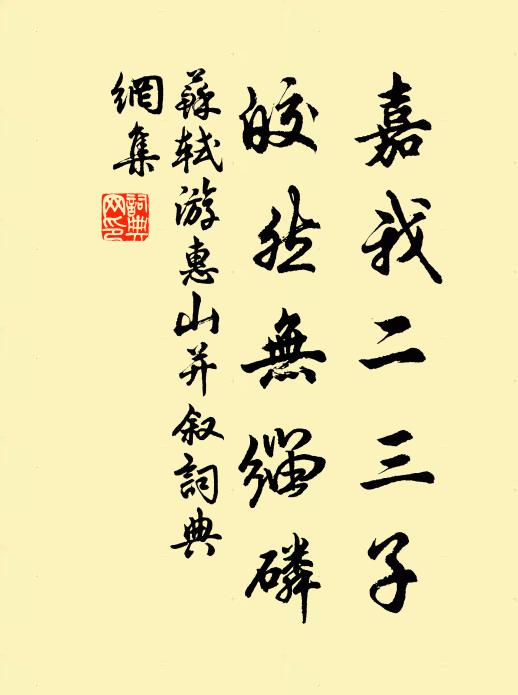 嘉我二三子
皎然無緇磷
蘇軾游惠山并叙詞典
網集
詞典网印